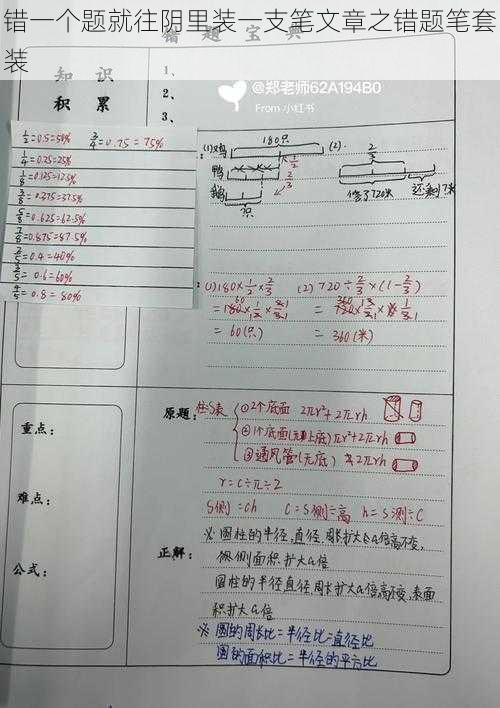 错一个题就往阴里装一支笔文章之错题笔套
装
错题宝典
知识
积累
1、
2、
3、
@郑老师62A194B0
From 小红书
1/2=0.5=50% 3/4=0.75=75%
1/4=0.25=25%
1/8=0.125=12.5%
3/8=0.375=37.5%
5/8=0.625=62.5%
7/8=0.875=87.5%
2/5=0.4=40%
3/5=0.6=60%
4/5=0.8=80%
(1)鸡 180只
鸭 1/2
鹅 2/3
?只
(2). 2/3
修了720米 还剩?米
:(1)180×1/2×2/3 (2)720÷2/3×(1-2/3)
=60(只) =360(米)
重点:
难点:
公式:
原题: 柱S表
①2个底面 2πr²+2πrh
②1个底面(无上底) πr²+2πrh
③通风管(无底) 2πrh
r=C÷π÷2
S侧=Ch C=S侧÷高 h=S侧÷C
正解:
※圆柱的半径,直径,周长扩大a倍高不变,
侧面积扩大a倍
圆柱的半径直径周长扩大a倍高不变,表面
积扩大a倍
※ 圆的周长比=半径比=直径比
圆的面积比=半径的平方比